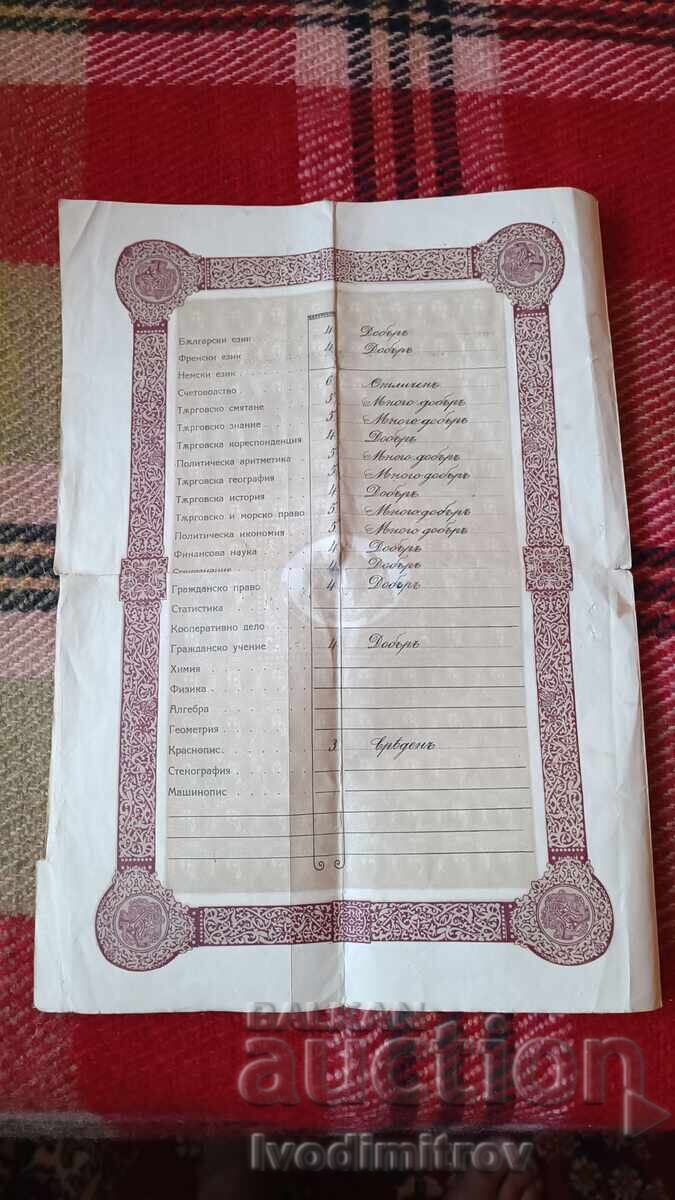 Български език . . . 4 Добъръ
Френски език . . . 4 Добъръ
Немски език . . . .
Счетоводство . . . 6 Отличенъ
Търговско смятане . 5 Много добъръ
Търговско знание . . 5 Много добъръ
Търговска кореспонденция 4 Добъръ
Политическа аритметика . 5 Много добъръ
Търговска география . . 5 Много добъръ
Търговска история . . 4 Добъръ
Търговско и морско право 5 Много добъръ
Политическа икономия . 5 Много добъръ
Финансова наука . . . 4 Добъръ
4 Добъръ
Гражданско право . . . 4 Добъръ
Статистика . . . . .
Кооперативно дело . .
Гражданско учение . . 4 Добъръ
Химия . . . . . .
Физика . . . . . .
Алгебра . . . . .
Геометрия . . . . .
Краснопис . . . . . 3 Срѣденъ
Стенография . . . .
Машинопис . . . .
BALKAN
auction
Ivodimitrov